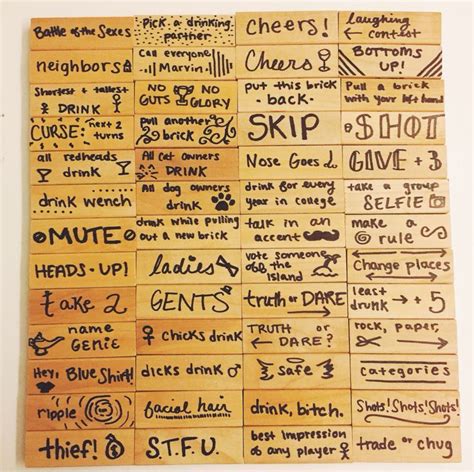 Battle of the Sexes
Pick a drinking
partner
Cheers!
laughing
contest
neighbors
Call everyone
Marvin!
Cheers
BOTTOMS
UP!
Shortest + tallest
DRINK
NO NO
GUTS GLORY
put this brick
- back -
Pull a brick
with your left hand
CURSE: next 2
turns
pull another
brick
SKIP
$HOT
all redheads
drink
All Cat owners
DRINK
Nose Goes
GIVE + 3
drink wench
All dog owners
drink
drink for every
year in college
take a group
SELFIE
MUTE
drink while pulling
out a new brick
talk in an
accent
make a
rule
HEADS-UP!
ladies
vote someone
off the
island
Change places
take 2
GENTS
truth or DARE
least
drunk → + 5
name
GENIE
chicks drink
TRUTH or
DARE?
rock, paper,
Hey, Blue Shirt!
dicks drink
safe
categories
ripple
facial hair
drink, bitch.
Shots! Shots! Shots!
thief!
S.T.F.U.
best impression
of any player
trade or chug